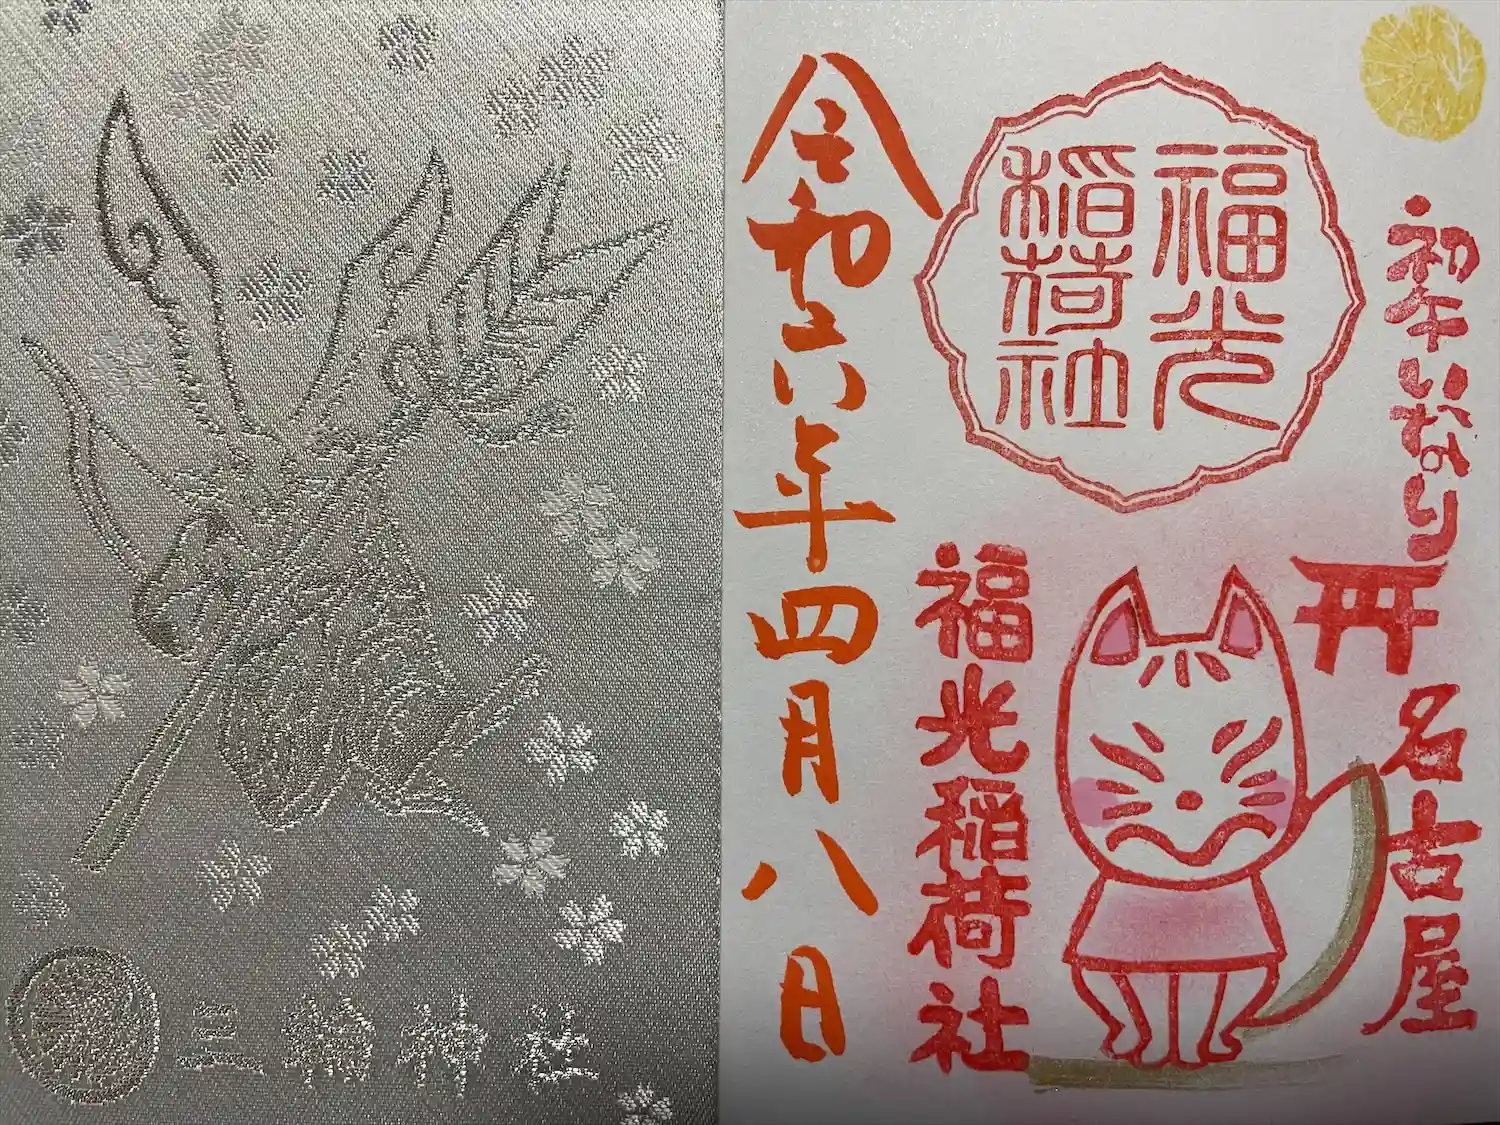 三輪神社
初午いなり
名古屋
福光
稲荷社
福光稲荷社
令和六年四月八日